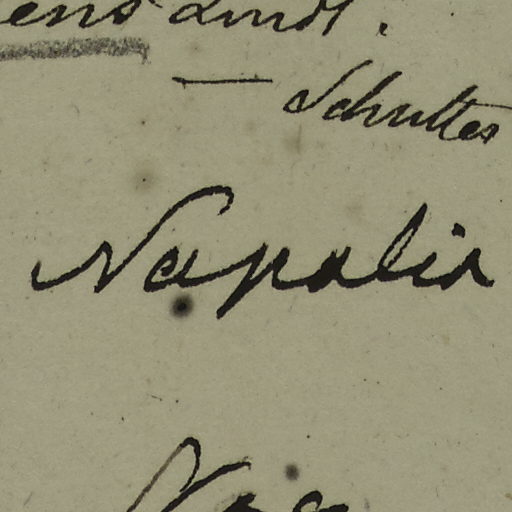 ens Lindl.
— Schultes
Napalia